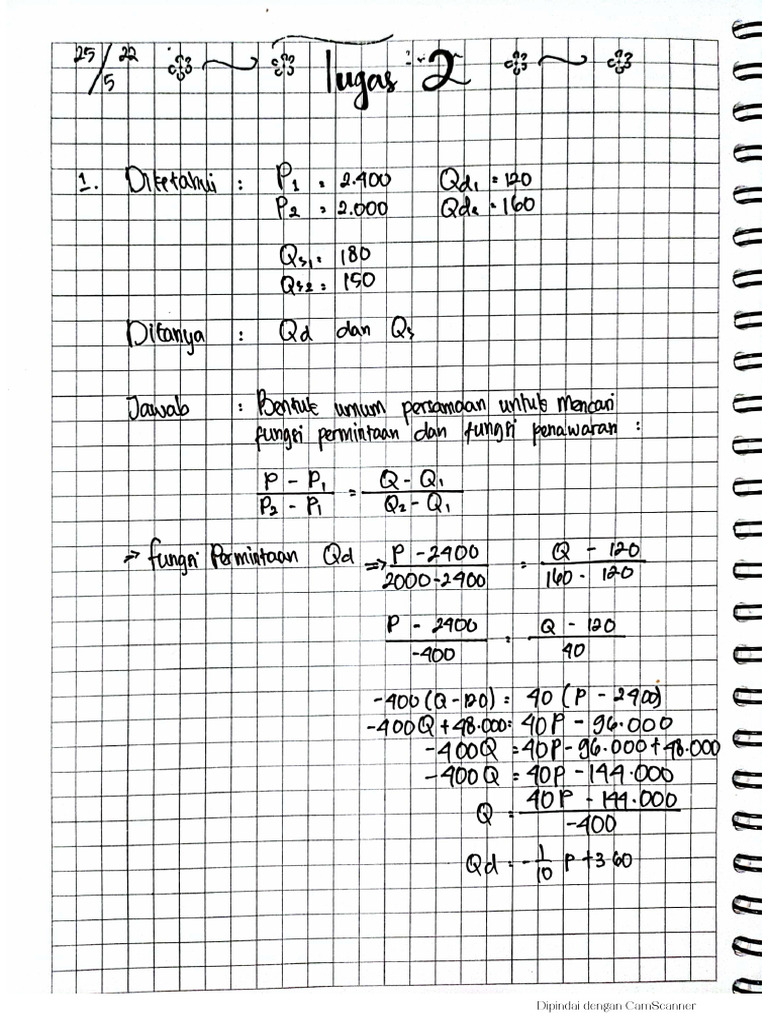 25/5 22
Tugas : 2
1. Diketahui : P1 = 2.400 Qd1 = 120
P2 = 2.000 Qd2 = 160
Qs1 = 180
Qs2 = 150
Ditanya : Qd dan Qs
Jawab : Bentuk umum persamaan untuk mencari
fungsi permintaan dan fungsi penawaran :
P - P1 / P2 - P1 = Q - Q1 / Q2 - Q1
⇒ fungsi Permintaan Qd ⇒ P - 2400 / 2000 - 2400 = Q - 120 / 160 - 120
P - 2400 / -400 = Q - 120 / 40
-400 (Q - 120) = 40 (P - 2400)
-400Q + 48.000 = 40P - 96.000
-400Q = 40P - 96.000 + 48.000
-400Q = 40P - 144.000
Q = 40P - 144.000 / -400
Qd = - 1/10 P + 360
Dipindai dengan CamScanner